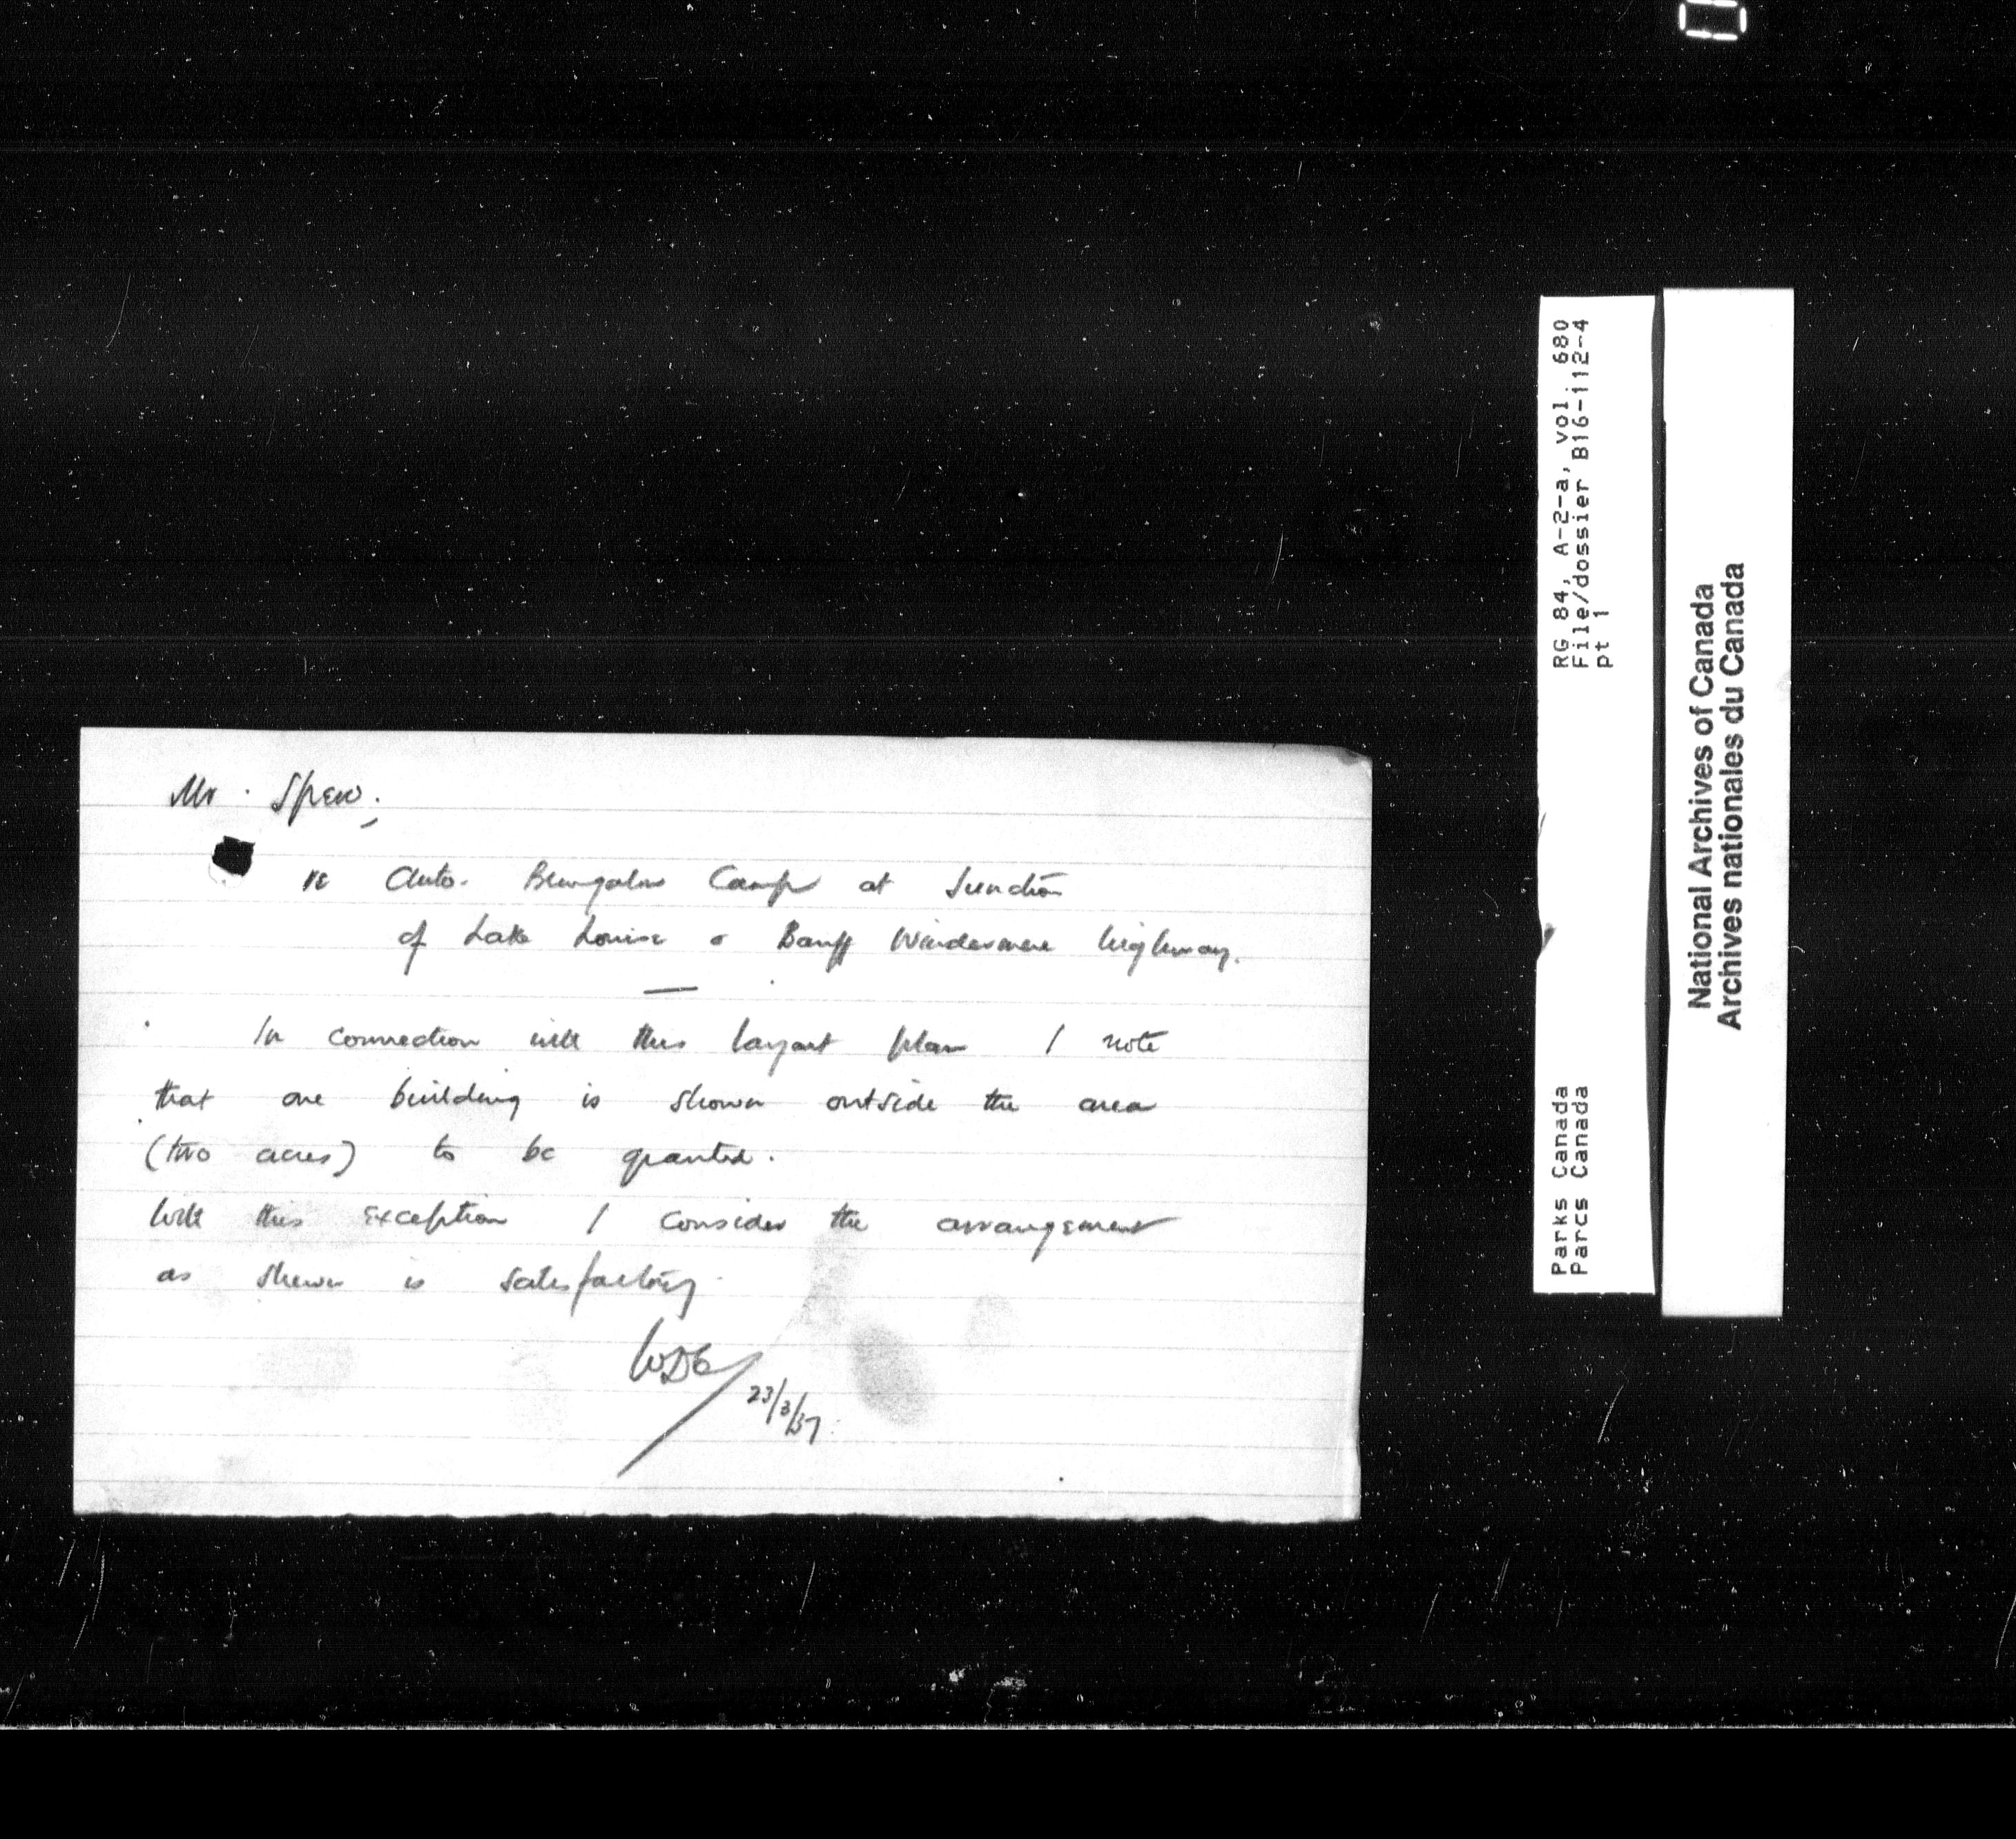 Mr. Spero,
re Auto. Bungalow Camp at Junction
of Lake Louise & Banff Windermere highway.
In connection with this layout plan I note
that one building is shown outside the area
(two acres) to be granted.
With this exception I consider the arrangement
as shewn is satisfactory.
23/3/37.
RG 84, A-2-a, vol. 680
File/dossier B16-112-4
pt 1
Parks Canada
Parcs Canada
National Archives of Canada
Archives nationales du Canada